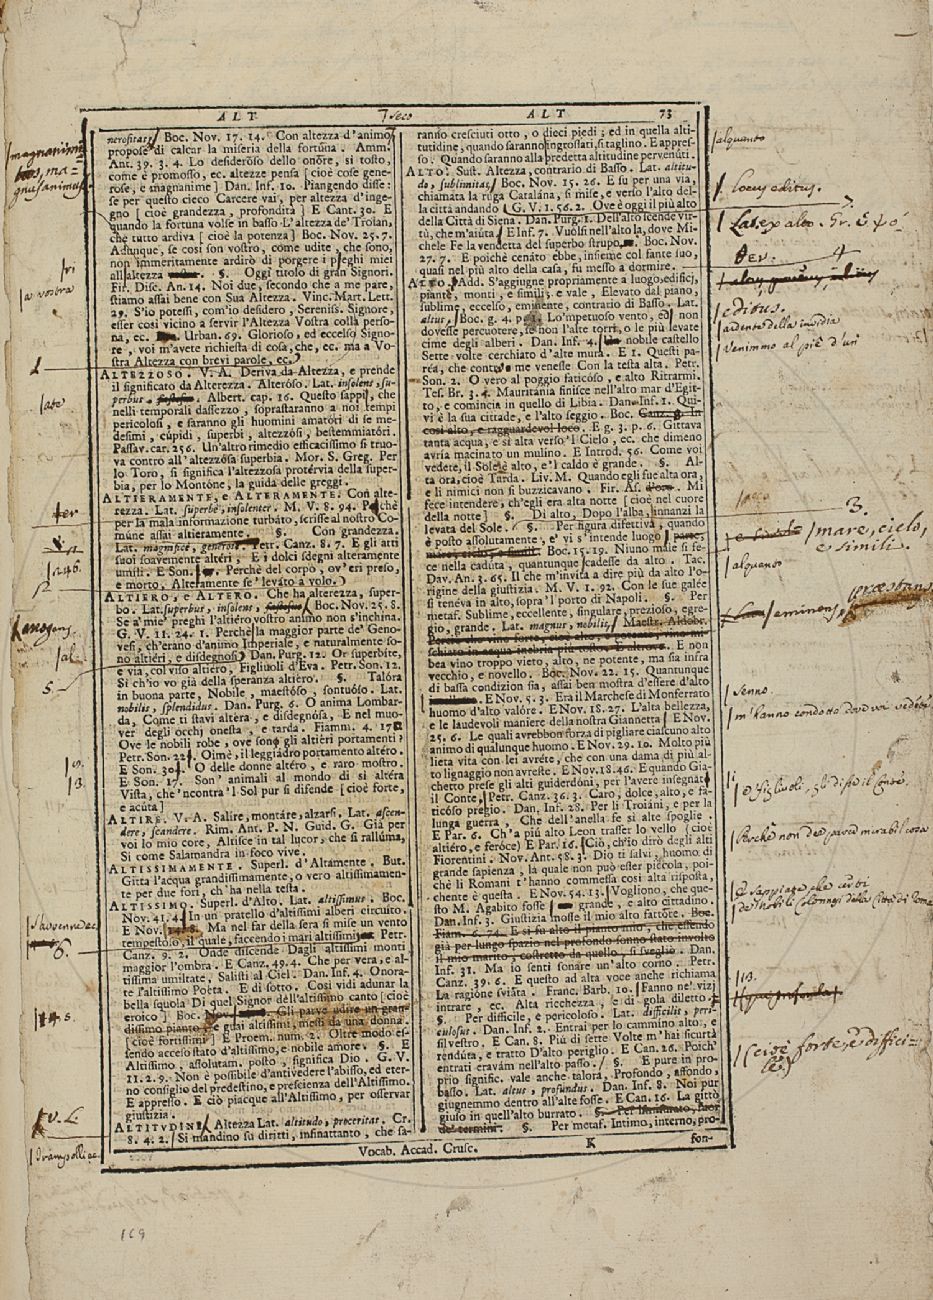 ALT
7 seco
ALT
73
nerositate Boc. Nov. 17. 14. Con altezza d'animo
propose di calcar la miseria della fortuna. Amm.
Ant. 39. 3. 4. Lo desideróso dello onóre, sì tosto,
come è promosso, ec. altezze pensa [cioè cose gene-
rose, e magnanime] Dan. Inf. 10. Piangendo disse:
se per questo cieco Carcere vai, per altezza d'inge-
gno [cioè grandezza, profondità] E Cant. 30. E
quando la fortuna volse in basso L'altezza de' Troian,
che tutto ardiva [cioè la potenza] Boc. Nov. 25. 7.
Adunque, se così son vostro, come udite, che sono,
non immeritamente ardirò di porgere i preghi miei
all altezza §. Oggi titolo di gran Signori.
Fir. Disc. An. 14. Noi due, secondo che a me pare,
stiamo assai bene con Sua Altezza. Vinc. Mart. Lett.
29. S'io potessi, com'io desidero, Sereniss. Signore,
esser così vicino a servir l'Altezza Vostra colla perso-
na, ec. Urban. 69. Glorioso, ed eccelso Signo-
re, voi m'avete richiesta di cosa, che, ec. ma a Vo-
stra Altezza con brevi parole, ec.
ALTEZZOSO. V. A. Deriva da Altezza, e prende
il significato da Alterezza. Alteróso. Lat. insolens, su-
perbus. Albert. cap. 16. Questo sappi, che
nelli temporali dassezzo, soprastaranno a noi tempi
pericolosi, e saranno gli huomini amatóri di se me-
desimi, cúpidi, superbi, altezzósi, bestemmiatóri.
Passav. car. 256. Un'altro rimedio efficacissimo si truo-
va contro all'altezzósa superbia. Mor. S. Greg. Per
lo Toro, si significa l'altezzosa protérvia della super-
bia, per lo Montóne, la guida delle greggi.
ALTIERAMENTE, e ALTERAMENTE. Con alte-
rezza. Lat. superbè, insolenter. M. V. 8. 94. Perchè
per la mala informazione turbáto, scrisse al nostro Co-
múne assai altieramente. §. Con grandezza.
Lat. magnificè, generosè. Petr. Canz. 8. 7. E gli atti
suoi soavemente altéri. E i dolci sdegni alteramente
umili. E Son. Perchè del corpo, ov'eri preso,
e morto, Alteramente se' leváto a volo.
ALTIERO, e ALTERO. Che ha alterezza, super-
bo. Lat. superbus, insolens, Boc. Nov. 25. 8.
Se a' miei preghi l'altiéro vostro animo non s'inchina.
G. V. 11. 24. 1. Perchè la maggior parte de' Geno-
vesi, ch'erano d'animo Imperiale, e naturalmente so-
no altiéri, e disdegnosi Dan. Purg. 12. Or superbite,
e via, col viso altiero, Figliuoli d'Eva. Petr. Son. 12.
Sì ch'io vo già della speranza altiéro. §. Talóra
in buona parte, Nobile, maestóso, sontuóso. Lat.
nobilis, splendidus. Dan. Purg. 6. O anima Lombar-
da, Come ti stavi altéra, e disdegnósa, E nel muo-
ver degli occhj onesta, e tarda. Fiamm. 4. 17
Ove le nobili robe, ove sono gli altiéri portamenti?
Petr. Son. 22. Oimè, il leggiádro portamento altéro.
E Son. 30. O delle donne altéro, e raro mostro.
E Son. 17. Son' animali al mondo di sì altéra
Vista, che'ncontra'l Sol pur si difende [cioè forte,
e acúta]
ALTIRE. V. A. Salire, montáre, alzarsi. Lat. ascen-
dere, scandere. Rim. Ant. P. N. Guid. G. Già per
voi lo mio core, Altisce in tal lucor, che si ralluma,
Sì come Salamandra in foco vive.
ALTISSIMAMENTE. Superl. d'Altamente. But.
Gitta l'acqua grandissimamente, o vero altissimamen-
te per due fori, ch'ha nella testa.
ALTISSIMO. Superl. d'Alto. Lat. altissimus. Boc.
Nov. 41. 4. In un pratello d'altissimi alberi circuito.
E Nov. Ma nel far della sera si mise un vento
tempestoso, il quale, faccendo i mari altissimi Petr.
Canz. 9. 2. Onde discende Dagli altissimi monti
maggior l'ombra. E Canz. 49. 4. Che per vera, e al-
tissima umiltate, Salisti al Ciel. Dan. Inf. 4. Onora-
te l'altissimo Poéta. E di sotto. Così vidi adunar la
bella scuola Di quel Signor dell'altissimo canto [cioè
eroico] Boc. Nov. Gli parve udire un gran-
dissimo pianto, e guai altissimi, messi da una donna.
[cioè fortissimi] E Proem. num. 2. Oltre modo es-
sendo acceso stato d'altissimo, e nobile amore. §. E
Altissimo, assolutam. posto, significa Dio. G. V.
11. 2. 9. Non è possibile d'antivedere l'abisso, ed eter-
no consiglio del predestino, e prescienza dell'Altissimo.
E appresso. E ciò piacque all'Altissimo, per osservar
giustizia.
ALTITUDINE Altezza Lat. altitudo, proceritas. Cr.
8. 4. 2. Si mandino su diritti, infinattanto, che sa-
ranno cresciuti otto, o dieci piedi; ed in quella alti-
tutidine, quando saranno ingrossati, si taglino. E appres-
so. Quando saranno alla predetta altitudine pervenuti.
ALTO. Sust. Altezza, contrario di Basso. Lat. altitu-
do, sublimitas, Boc. Nov. 15. 26. E su per una via,
chiamata la ruga Catalána, si mise, e verso l'alto del-
la città andando G. V. 1. 56. 2. Ove è oggi il più alto
della Città di Siena. Dan. Purg. 1. Dell'alto scende vir-
tù, che m'aiúta E Inf. 7. Vuolsi nell'alto la, dove Mi-
chele Fe la vendetta del superbo strupo. Boc. Nov.
27. 7. E poichè cenáto ebbe, insieme col fante suo,
quasi nel più alto della casa, fu messo a dormire.
ALTO. Add. S'aggiugne propriamente a luogo, edificj,
piante, monti, e simili; e vale, Elevato dal piano,
sublime, eccelso, eminente, contrario di Basso. Lat.
altus, Boc. g. 4. p. Lo'mpetuoso vento, ed non
dovesse percuotere, se non l'alte torri, o le più levate
cime degli alberi. Dan. Inf. 4. nobile castello
Sette volte cerchiato d'alte mura. E 1. Questi pa-
réa, che contro me venesse Con la testa alta. Petr.
Son. 2. O vero al poggio faticóso, e alto Ritrarmi.
Tes. Br. 3. 4. Mauritánia finisce nell'alto mar d'Egit-
to, e comincia in quello di Libia. Dan. Inf. 1. Qui-
vi è la sua cittade, e l'alto seggio. Boc. Canz. 8. In
così alto, e ragguardevol loco. E g. 3. p. 6. Gittava
tanta acqua, e sì alta verso'l Cielo, ec. che dimeno
avría macinato un mulino. E Introd. 56. Come voi
vedete, il Sole è alto, e'l caldo è grande. §. Al-
ta ora, cioè Tarda. Liv. M. Quando egli fue alta ora,
e li nimici non si buzzicavano. Fir. As. Mi
fece intendere, ch'egli era alta notte [cioè nel cuore
della notte] §. Di alto, Dopo l'alba, innanzi la
levata del Sole. §. Per figura difettiva, quando
è posto assolutamente, e' vi s'intende luogo
Boc. 15. 19. Niuno male si fe-
ce nella caduta, quantunque cadesse da alto. Tac.
Dav. An. 3. 65. Il che m'invita a dire più da alto l'o-
rigine della giustizia. M. V. 1. 92. Con le sue galée
si tenéva in alto, sopra'l porto di Napoli. §. Per
metaf. Sublime, eccellente, singulare, prezioso, egre-
gio, grande. Lat. magnus, nobilis, Maestr. Aldobr.
Perchè vino forte, cioè alto, e potente, vino mi-
schiato in acqua inebria più tosto. E altrove. E non
bea vino troppo vieto, alto, ne potente, ma sia infra
vecchio, e novello. Boc. Nov. 22. 15. Quantunque
di bassa condizion sia, assai ben mostra d'essere d'alto
E Nov. 5. 3. Era il Marchese di Monferrato
huomo d'alto valóre. E Nov. 18. 27. L'alta bellezza,
e le laudevoli maniere della nostra Giannetta E Nov.
25. 6. Le quali avrebbon forza di pigliare ciascuno alto
animo di qualunque huomo. E Nov. 29. 10. Molto più
lieta vita con lei avréte, che con una dama di più al-
to lignaggio non avreste. E Nov. 18. 46. E quando Gia-
chetto prese gli alti guiderdóni, per l'avere insegnato
il Conte, Petr. Canz. 36. 3. Caro, dolce, alto, e fa-
ticóso pregio. Dan. Inf. 28. Per li Troiáni, e per la
lunga guerra, Che dell'anella fe sì alte spoglie.
E Par. 6. Ch'a più alto Leon trasser lo vello [cioè
altiéro, e feróce] E Par. 16. Ciò, ch'io dirò degli alti
Fiorentini. Nov. Ant. 58. 3. Dio ti salvi, huomo di
grande sapienza, la quale non può esser piccola, poi-
chè li Romani t'hanno commessa così alta risposta,
chente è questa. E Nov. 54. 13. Vogliono, che que-
sto M. Agabito fosse grande, e alto cittadino.
Dan. Inf. 3. Giustizia mosse il mio alto fattóre. Boc.
Fiam. 6. 74. E sì su alto il pianto mio, che essendo
già per lungo spazio nel profondo sonno stato involto
il mio marito, costretto da quello, si svegliò. Dan.
Inf. 31. Ma io senti' sonáre un'alto corno. Petr.
Canz. 39. 6. E questo ad alta voce anche richiama
La ragione sviáta. Franc. Barb. 10. Fanno ne' vizj
intrare, ec. Alta ricchezza, e di gola diletto.
§. Per difficile, e pericoloso. Lat. difficilis, peri-
culosus. Dan. Inf. 2. Entrai per lo cammino alto, e
silvestro. E Can. 8. Più di sette Volte m'hai sicurtà
rendúta, e tratto D'alto periglio. E Can. 26. Poich'
entrati eravám nell'alto passo. §. E pure in pro-
prio signific. vale anche talora, Profondo, affondo,
basso. Lat. altus, profundus. Dan. Inf. 8. Noi pur
giugnemmo dentro all'alte fosse. E Can. 16. La gittò
giuso in quell'alto burrato. §.
de' termini. §. Per metaf. Intimo, interno, pro-
Vocab. Accad. Crusc.
K
fon-
magnanimi
tas, ma-
gnus animus
a vostra
ter
246.
5.
al
6.
v. L
alquanto
locus editus.
Lat. ex alto. Gr.
4
editus.
ardente della invidia
Venimmo al piè d'un
loco
3.
mare, cielo,
e simili.
alquando
eminens,
præstans
senno.
m'hanno condotto dove voi vedete
o figliuoli, gli disse il Conte
Perchè non dee parer mirabil cosa
E sappiate che
de' nobili Colonnesi della Città di Roma
113.
(cioè forte, e diffici-
le)
169